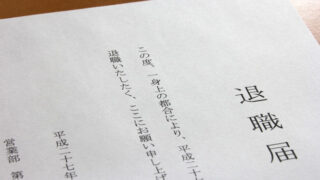 退職届
この度、一身上の都合により、平成二十
退職いたしたく、ここにお願い申し上げ
平成二十七年
営業部 第